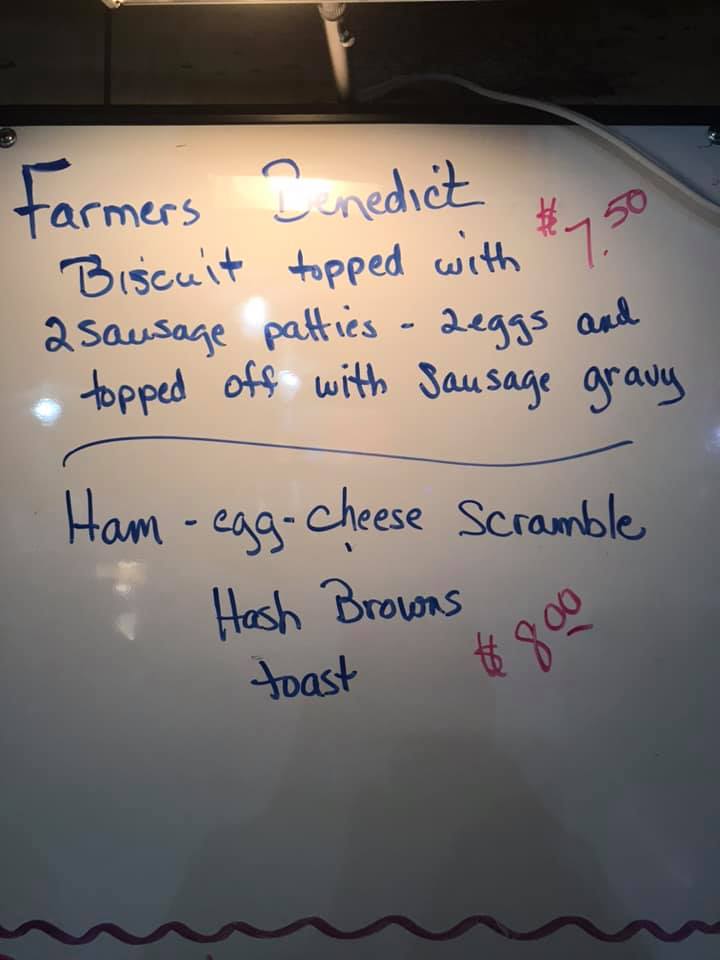 Farmers Benedict
$7.50
Biscuit topped with
2 Sausage patties - 2eggs and
topped off with Sausage gravy
Ham - egg - cheese Scramble
Hash Browns
toast
$8.00